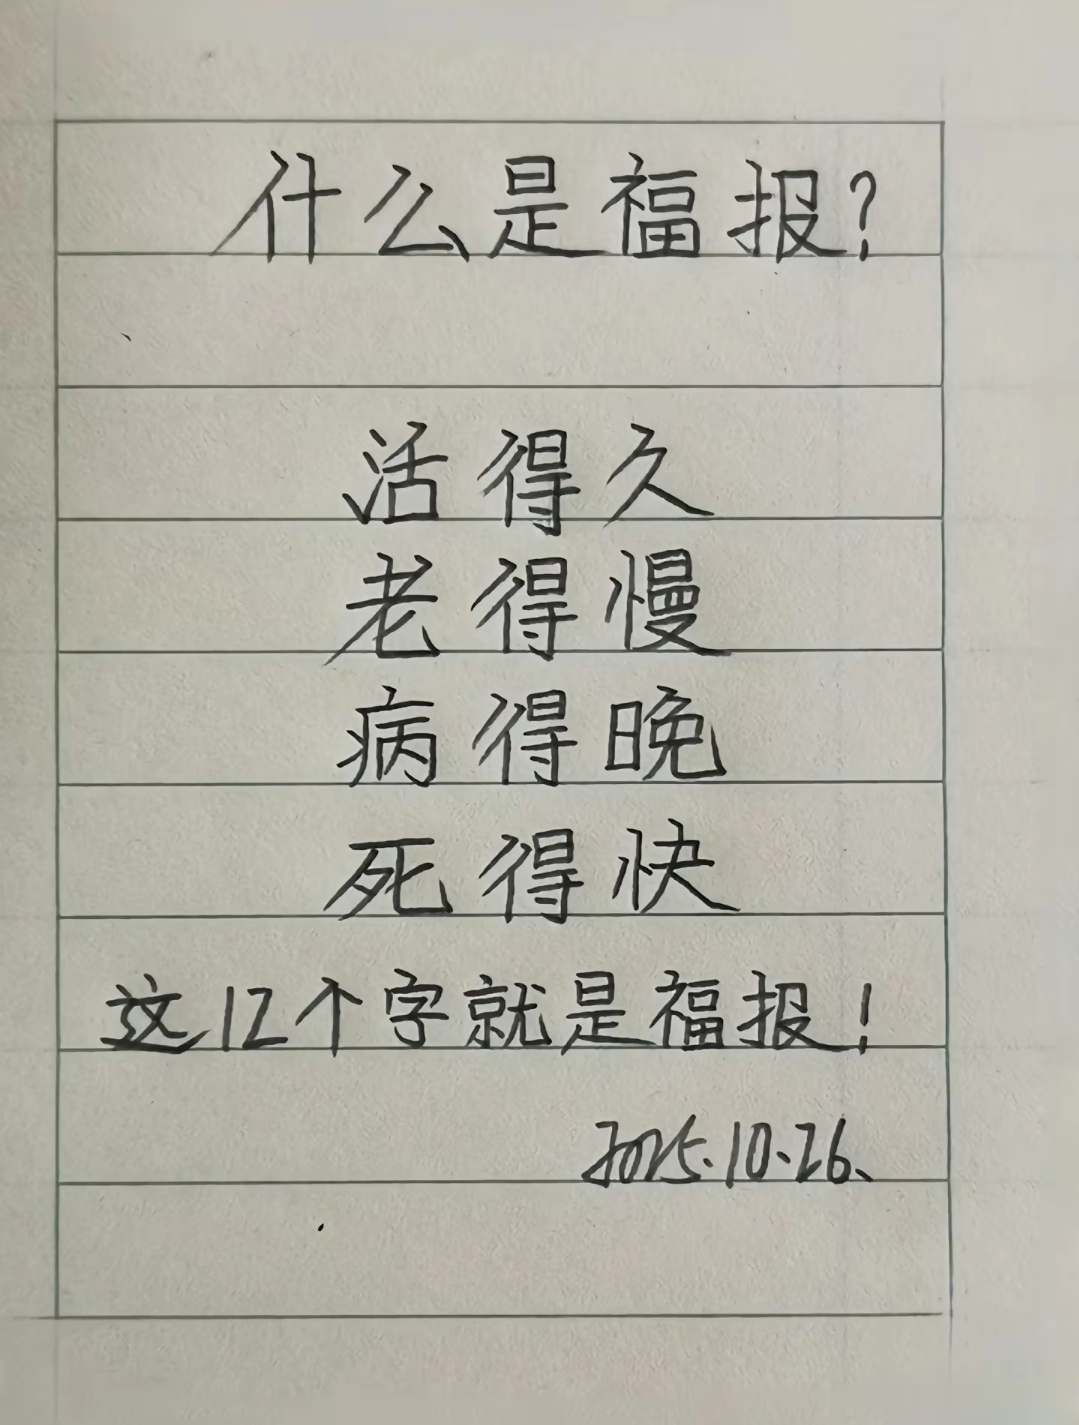 什么是福报？
活得久
老得慢
病得晚
死得快
这12个字就是福报！
2025.10.26.